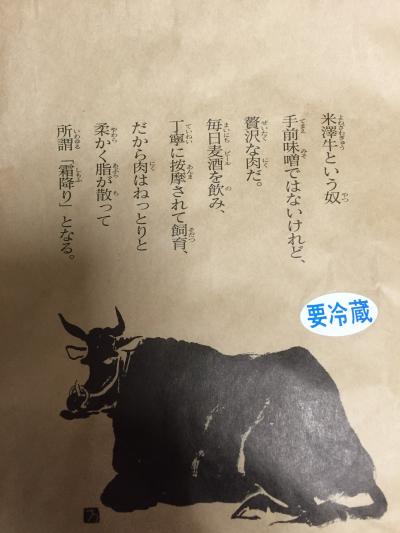 米澤牛という奴
手前味噌ではないけれど、
贅沢な肉だ。
毎日麦酒を飲み、
丁寧に按摩されて飼育、
だから肉はねっとりと
柔かく脂が散って
所謂「霜降り」となる。
要冷蔵